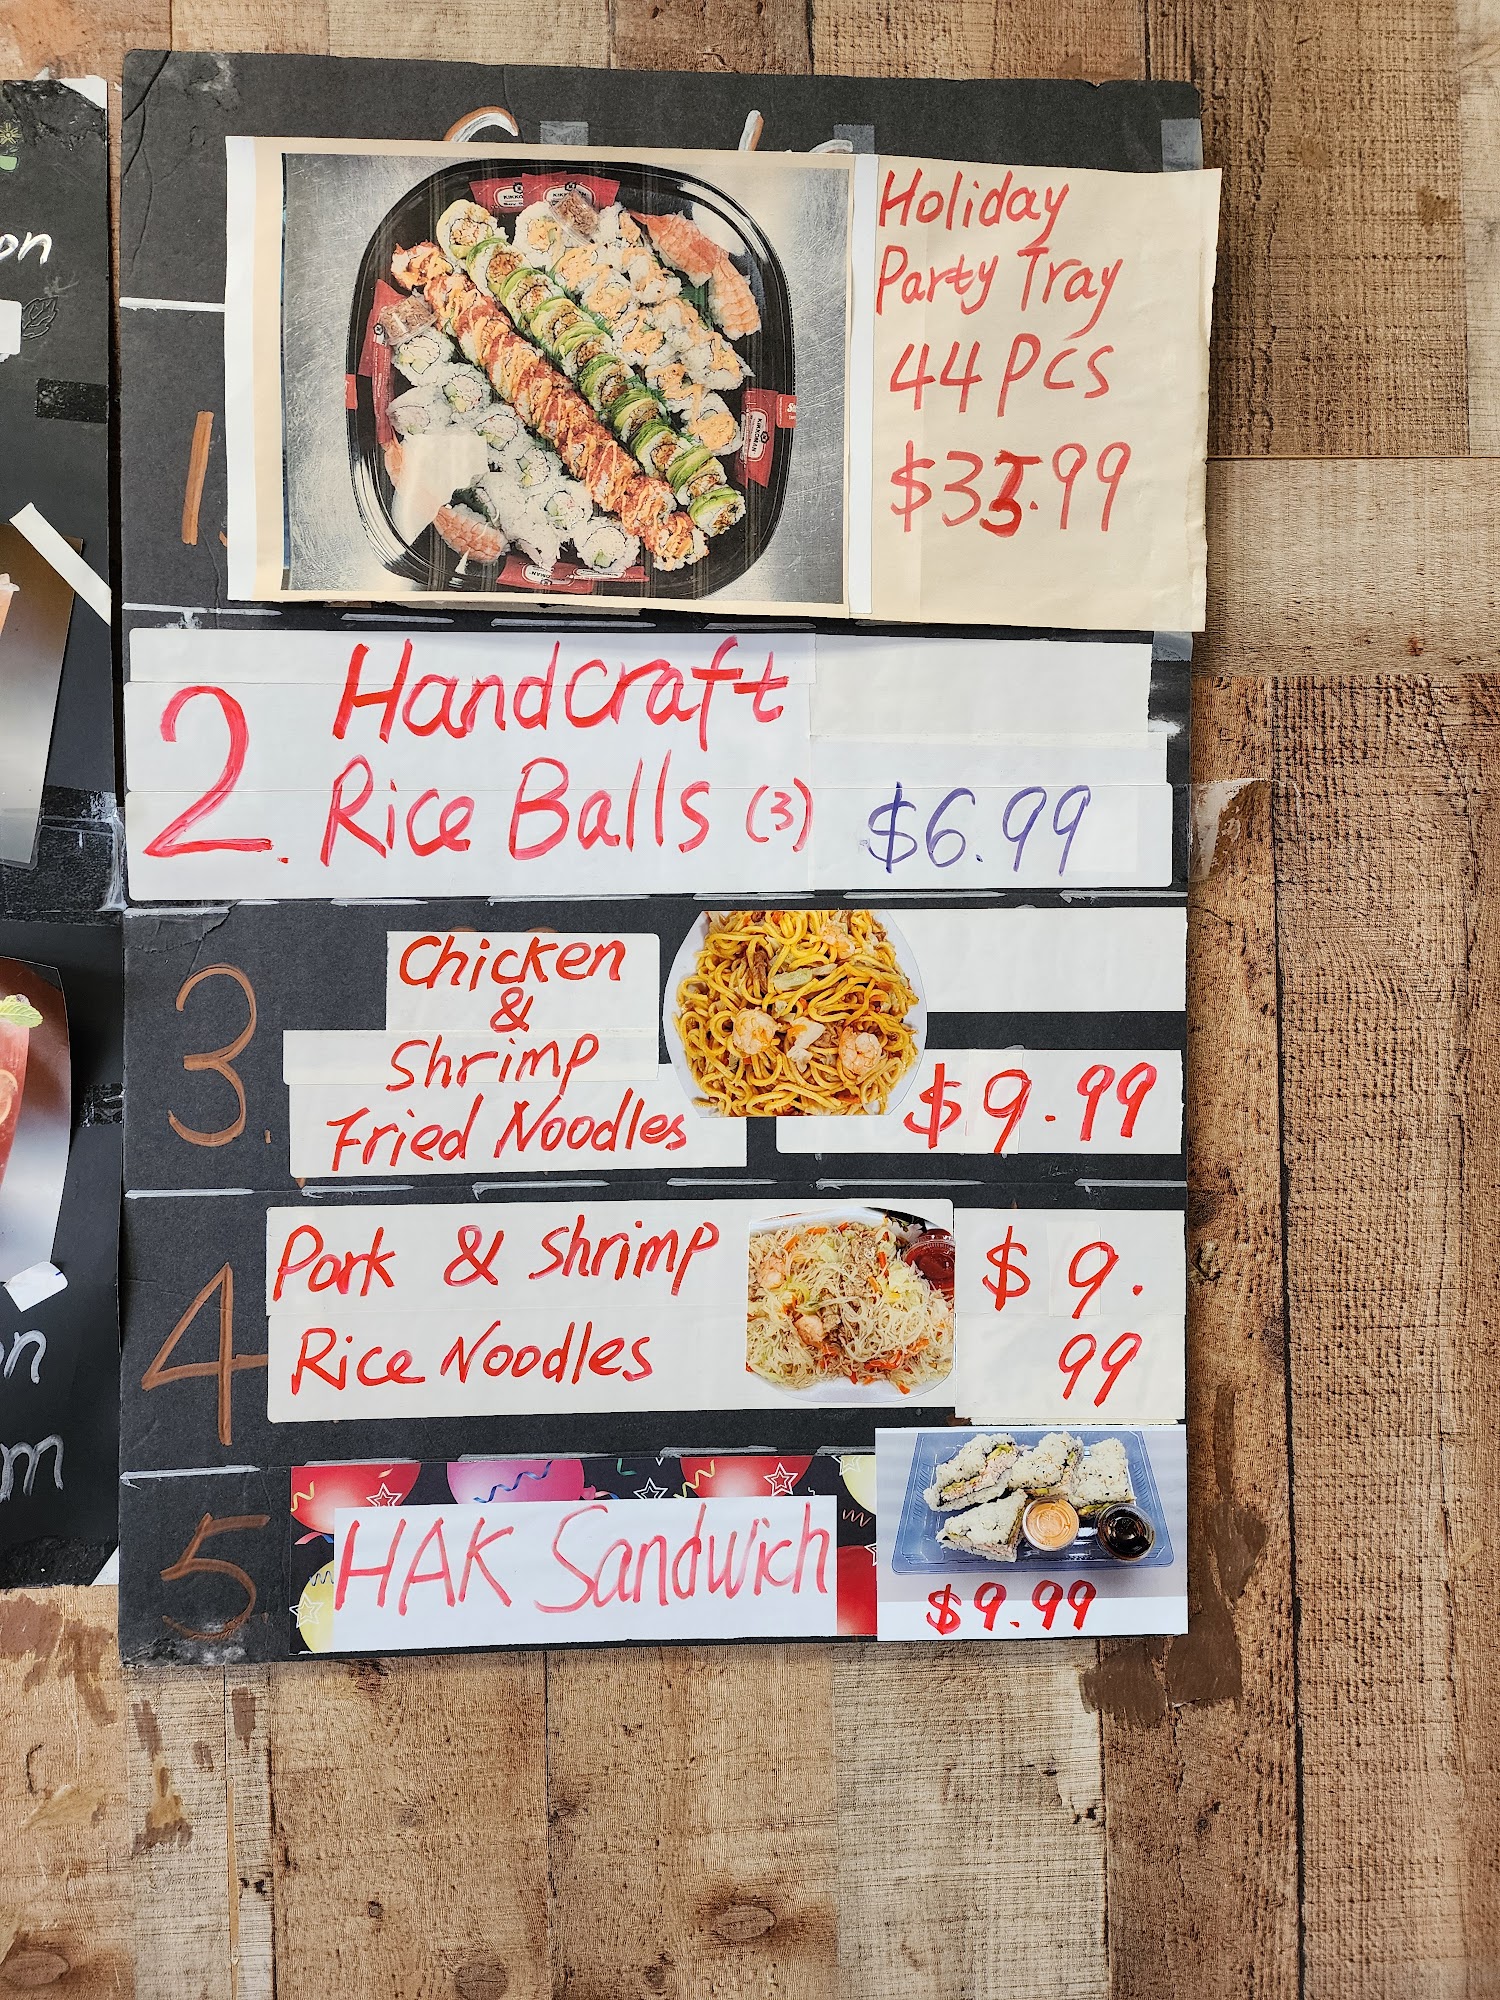 on
Holiday
Party Tray
44 Pcs
$35.99
1.
2.
Handcraft
Rice Balls (3) $6.99
3.
Chicken
&
Shrimp
Fried Noodles
$9.99
4
Pork & Shrimp
Rice Noodles
$9.
99
5
HAK Sandwich
$9.99
on
m
KIKKOMAN